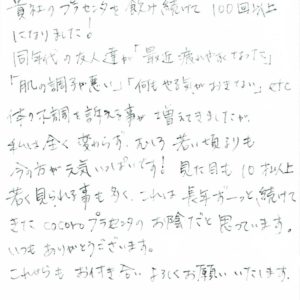 貴社のプラセンタを飲み続けて100回以上
になりました!
同年代の友人達が「最近疲れやすくなった」
「肌の調子が悪い」「何もやる気がおきない」など
体の不調を訴える事が増えてきましたが、
私は全く変わらず、むしろ若い頃よりも
今の方が元気いっぱいです!見た目も10才以上
若く見られる事も多く、これは長年ずーっと続けて
きたcocoroプラセンタのお陰だと思っています。
いつもありがとうございます。
これからもお付き合いよろしくお願いいたします。